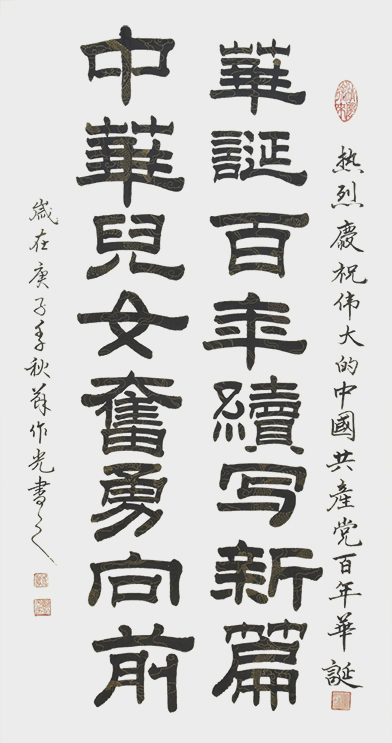 热烈慶祝伟大的中國共產党百年華誕
華誕百年續写新篇
中華兒女奮勇向前
歲在庚子季秋薛作光書之